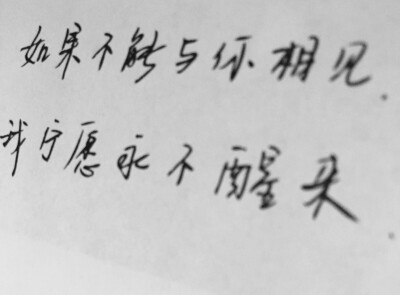 如果不能与你相见.
我宁愿永不醒来.